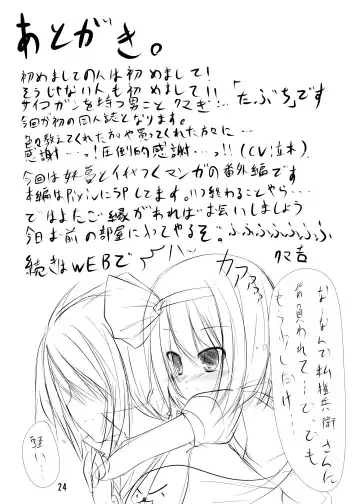 あとがき。
初めましての人は初めまして!
そうじゃない人も初めまして!!
サイコガンを持つ男こと クマぎ…「たぶち」です
今回が初の同人誌となります。
色々教えてくれた方々や買ってくれた方々に…
感謝…っ!圧倒的感謝…っ!!(CV:立木)
今回は妖夢とイチャつくマンガの番外編です
本編はPixivにUPしてます。いつ終わることやら…
ではまたご縁があればお会いしましょう
今日お前の部屋に行ってやるぞ。ふふふふふふふ
クマ吉
続きはWEBで
ハッ
カアアァァ
な…なんで私権兵衛さんに
背負われて…で、でも
もう少しだけ…
24